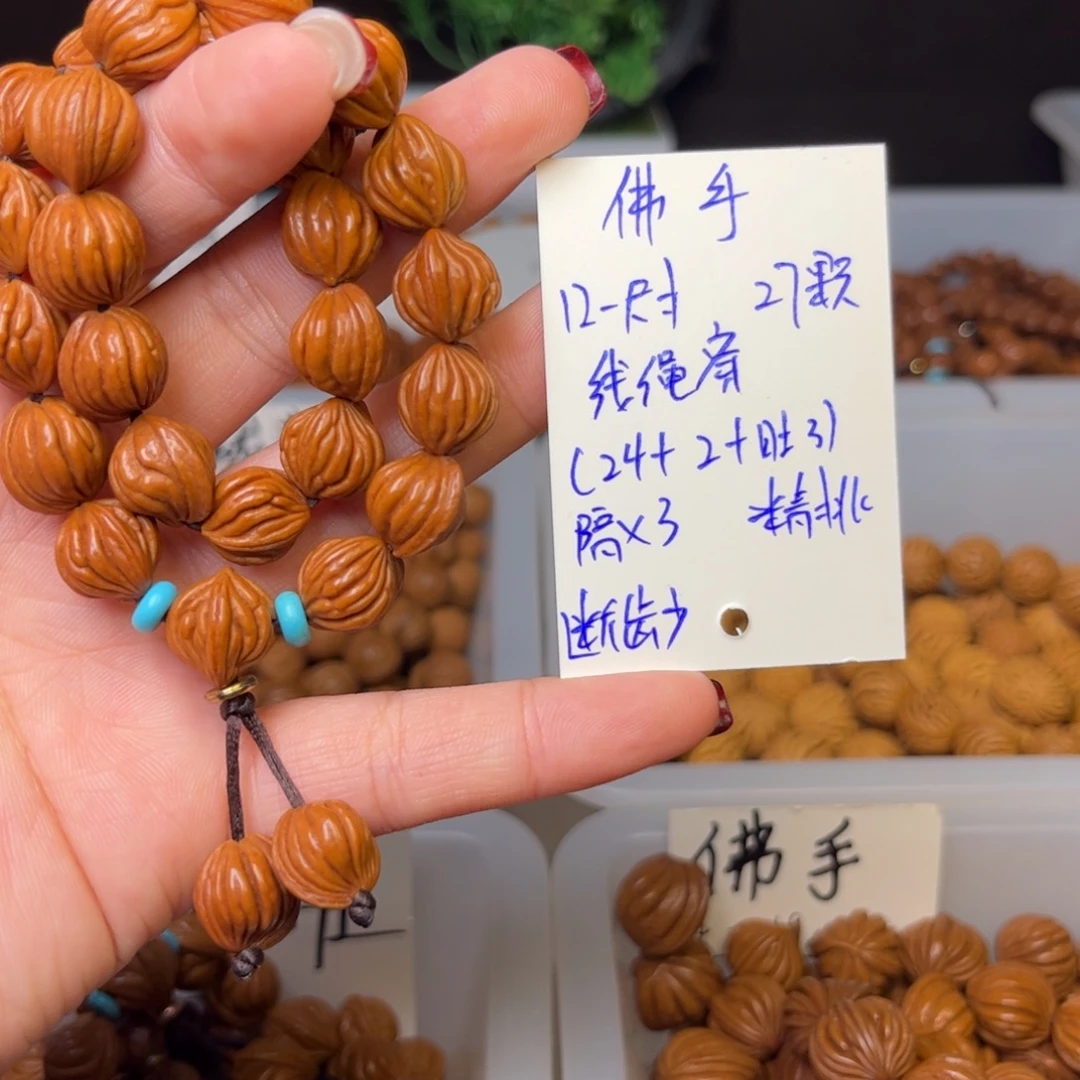 佛手
12-尺寸 27颗
线绳穿
(24+2+肚3)
隔×3 精挑
断齿少
佛手